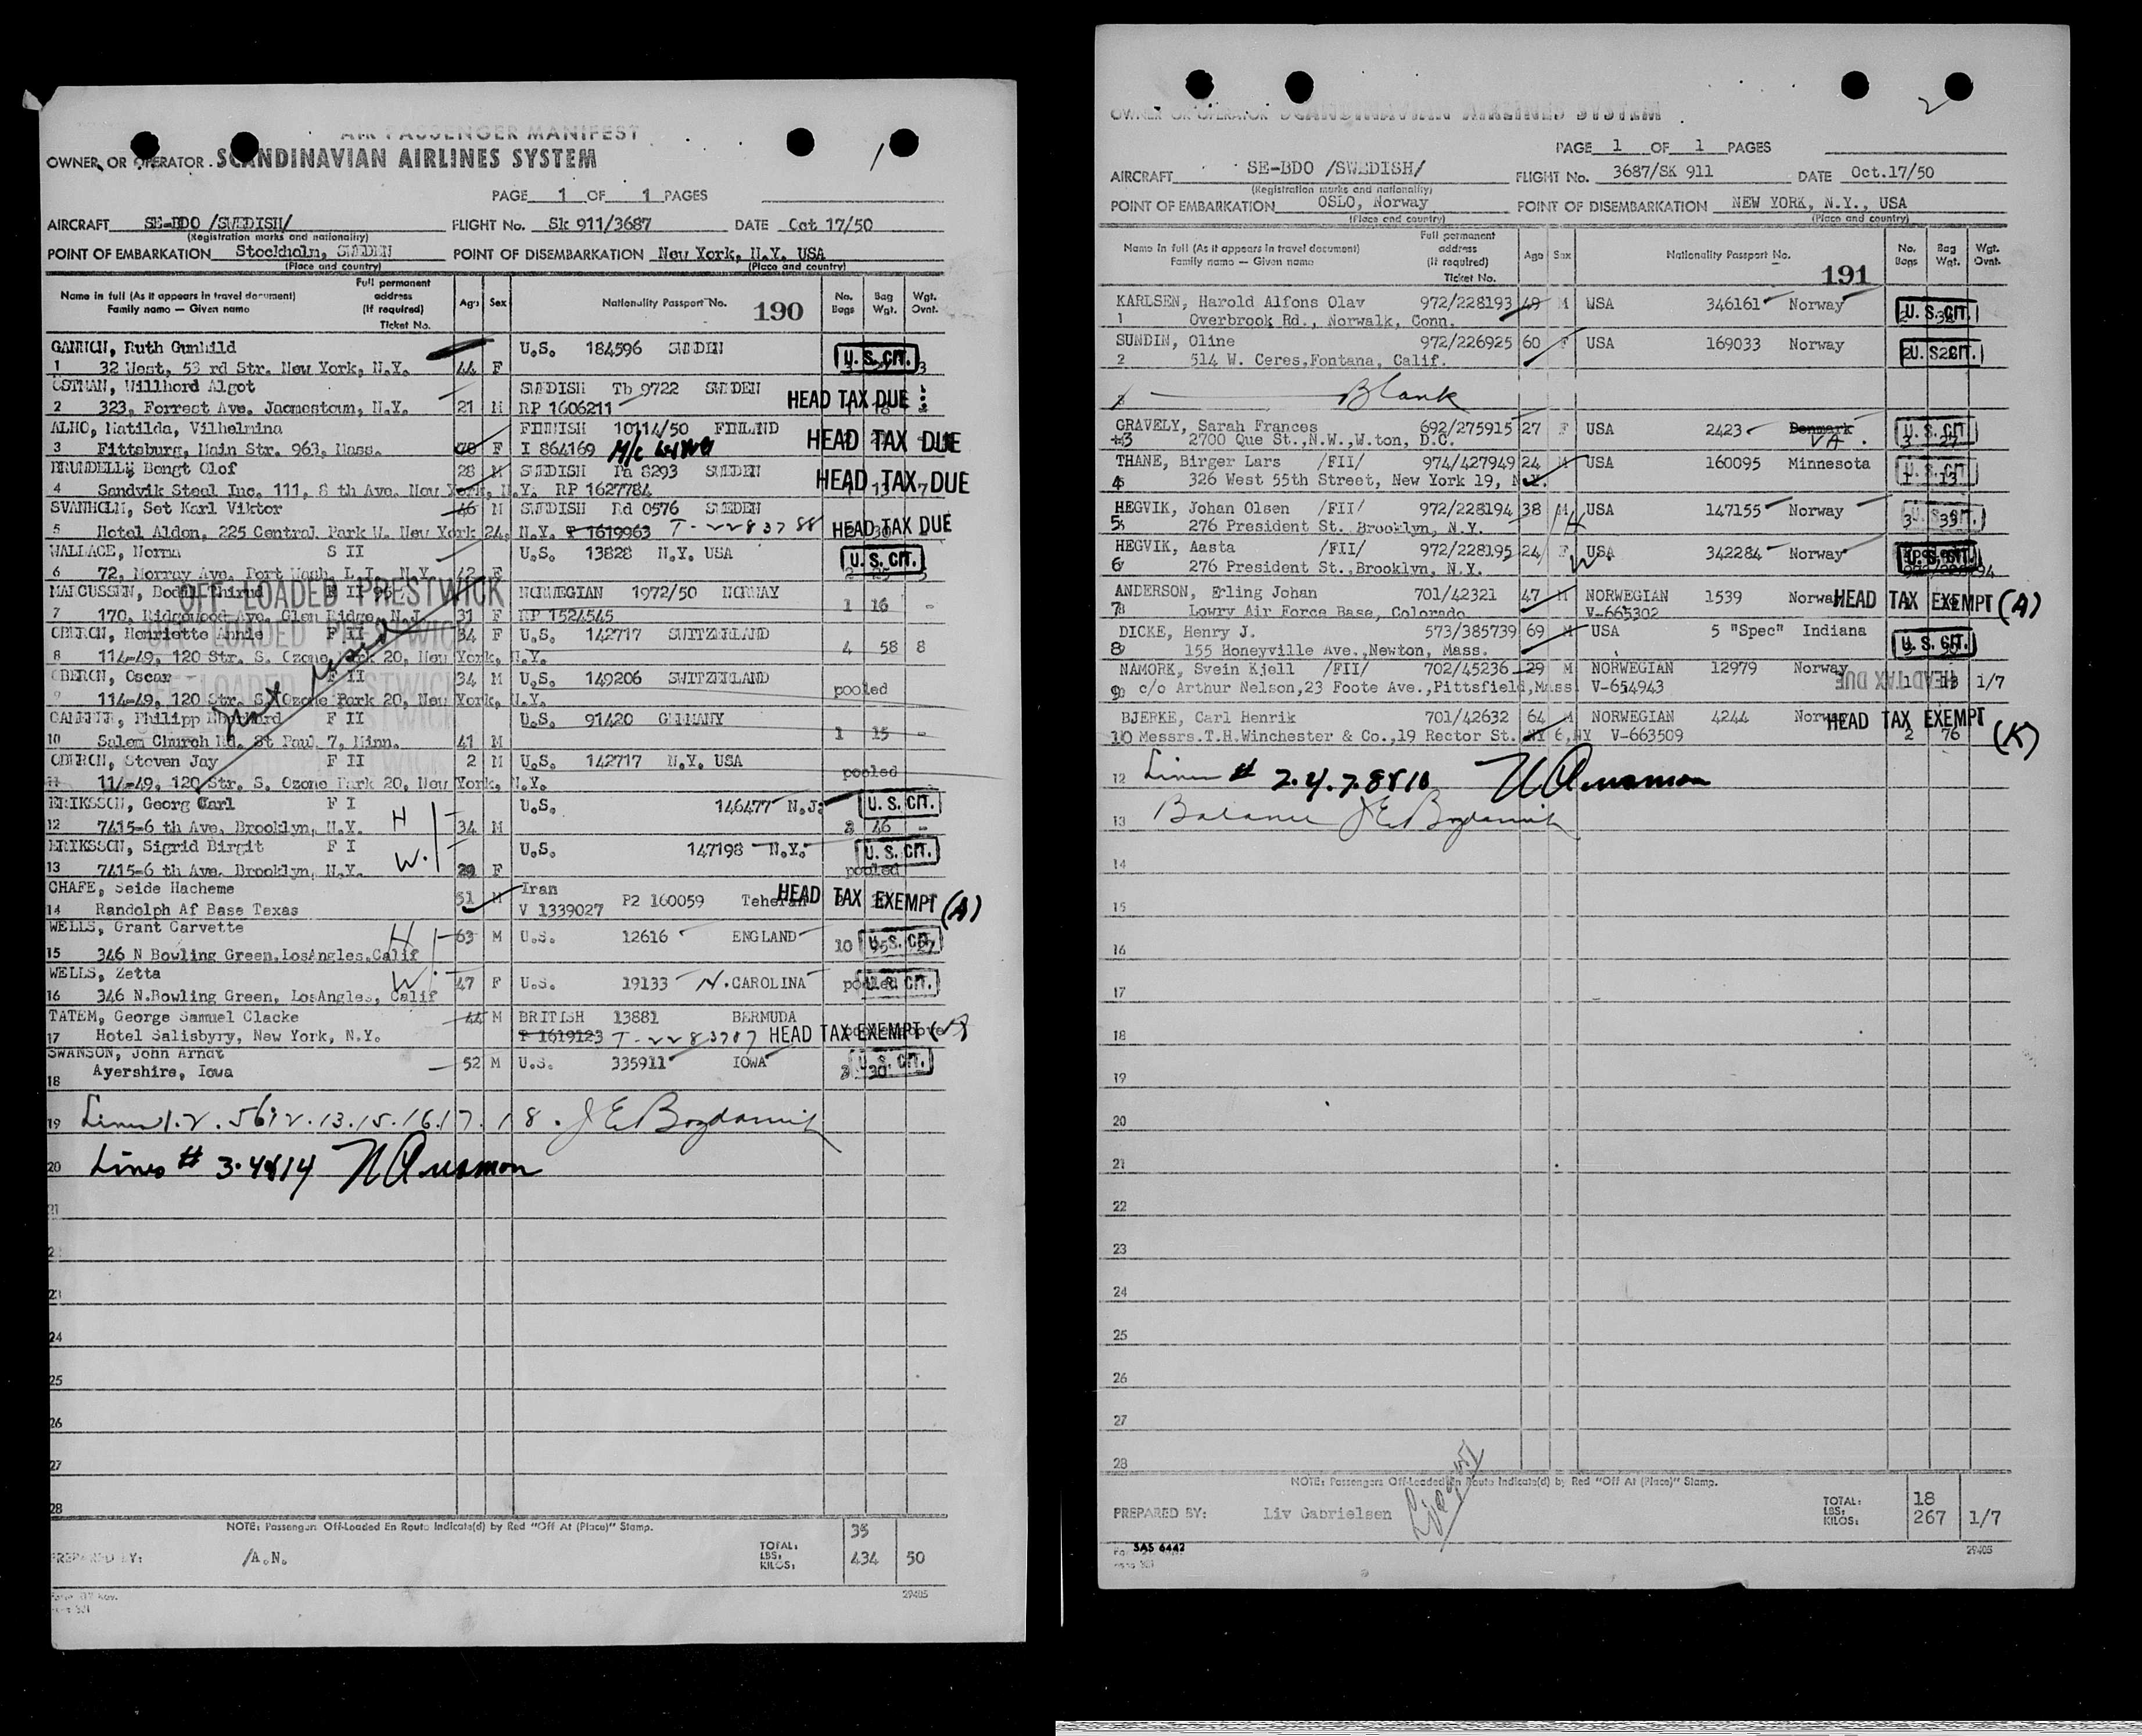 AIR PASSENGER MANIFEST
OWNER OR OPERATOR SCANDINAVIAN AIRLINES SYSTEM
1
PAGE 1 OF 1 PAGES
AIRCRAFT SE-BDO /SWEDISH/ FLIGHT No. Sk 911/3687 DATE Oct 17/50
(Registration marks and nationality)
POINT OF EMBARKATION Stockholm, SWEDEN POINT OF DISEMBARKATION New York, N.Y. USA
(Place and country) (Place and country)
Name in full (As it appears in travel document) Family name — Given name Full permanent address (If required) Ticket No. Age Sex Nationality Passport No. 190 No. Bags Bag Wgt. Wgt. Ovnt.
Ruth Gunhild U.S. 184596 SWEDEN U.S. CIT. 3
1 32 West, 53 rd Str. New York, N.Y. 44 F
ÖSTMAN, Willhord Algot SWEDISH Tb 9722 SWEDEN HEAD TAX DUE
2 323, Forrest Ave. Jacmestown, N.Y. 21 M RP 1606211
ALHO, Matilda, Vilhelmina FINNISH 10114/50 FINLAND HEAD TAX DUE
3 Fittsburg, Main Str. 963, Mass. F I 864169
Bengt Olof 28 M SWEDISH Pa 8293 SWEDEN HEAD TAX DUE
4 Sandvik Steel Inc. 111, 8 th Ave. New York, N.Y. RP 1627784
SVANHOLM, Set Karl Viktor 46 M SWEDISH Rd 0576 SWEDEN
5 Hotel Alden, 225 Central Park W. New York 24, N.Y. P 1619963 T-2283788 HEAD TAX DUE
WALLACE, Norma S II U.S. 13828 N.Y. USA U.S. CIT.
6 72, Morray Ave. Port Wash. L.I. N.Y. 42 F
OFF LOADED PRESTWICK
MARCUSSEN, Bodil Thirud F II NORWEGIAN 1972/50 NORWAY 1 16 -
7 170, Ridgewood Ave. Glen Ridge, N.J. 31 F RP 1524545
OFF LOADED PRESTWICK
OBERON, Henriette Annie F II 34 F U.S. 142717 SWITZERLAND 4 58 8
8 114-49, 120 Str. S. Ozone Park 20, New York, N.Y.
not used
OBERON, Oscar F II 34 M U.S. 149206 SWITZERLAND pooled
9 114-49, 120 Str. S. Ozone Park 20, New York, N.Y.
Philipp F II U.S. 91420 GERMANY 1 15 -
10 Salem Church Rd. St Paul 7, Minn. 41 M
OBERON, Steven Jay F II 2 M U.S. 142717 N.Y. USA pooled
11 114-49, 120 Str. S. Ozone Park 20, New York, N.Y.
ERIKSSON, Georg Carl F I H U.S. 146477 N.J. U.S. CIT.
12 7415-6 th Ave. Brooklyn, N.Y. 34 M 2 46 -
ERIKSSON, Sigrid Birgit F I W. U.S. 147198 N.Y. U.S. CIT.
13 7415-6 th Ave. Brooklyn, N.Y. 29 F pooled
CHAFE, Seide Hacheme 51 M Iran P2 160059 Teheran HEAD TAX EXEMPT (A)
14 Randolph Af Base Texas V 1339027
WELLS, Grant Carvette H 63 M U.S. 12616 ENGLAND 10 U.S. CIT.
15 346 N Bowling Green, LosAngles, Calif
WELLS, Zetta W. 47 F U.S. 19133 N.CAROLINA pooled U.S. CIT.
16 346 N.Bowling Green, LosAngles, Calif
TATEM, George Samuel Clacke 44 M BRITISH 13881 BERMUDA
17 Hotel Salisbyry, New York, N.Y. P 1619123 T-2283787 HEAD TAX EXEMPT
SWANSON, John Arndt 52 M U.S. 335911 IOWA 30 U.S. CIT.
18 Ayershire, Iowa
19 Lines 1.2.5 6 12.13.15.16.17.18.
20 Lines # 3.4&14
24
25
26
27
28
NOTE: Passengers Off-Loaded En Route Indicate(d) by Red "Off At (Place)" Stamp.
PREPARED BY: /A.N. TOTAL: LBS: KILOS: 35 434 50
29405
OWNER OR OPERATOR SCANDINAVIAN AIRLINES SYSTEM
2
PAGE 1 OF 1 PAGES
AIRCRAFT SE-BDO /SWEDISH/ FLIGHT No. 3687/SK 911 DATE Oct.17/50
(Registration marks and nationality)
POINT OF EMBARKATION OSLO, Norway POINT OF DISEMBARKATION NEW YORK, N.Y., USA
(Place and country) (Place and country)
Name in full (As it appears in travel document) Family name — Given name Full permanent address (If required) Ticket No. Age Sex Nationality Passport No. 191 No. Bags Bag Wgt. Wgt. Ovnt.
KARLSEN, Harold Alfons Olav 972/228193 49 M USA 346161 Norway U.S. CIT.
1 Overbrook Rd., Norwalk, Conn.
SUNDIN, Oline 972/226925 60 F USA 169033 Norway U.S. CIT.
2 514 W. Ceres,Fontana, Calif.
3 Blank
GRAVELY, Sarah Frances 692/275915 27 F USA 2423 Denmark VA. U.S. CIT
3 2700 Que St.,N.W.,W.ton, D.C.
THANE, Birger Lars /FII/ 974/427949 24 M USA 160095 Minnesota U.S. CIT
4 326 West 55th Street, New York 19, N.Y.
HEGVIK, Johan Olsen /FII/ 972/228194 38 M H USA 147155 Norway 3 39 U.S. CIT
5 276 President St. Brooklyn, N.Y.
HEGVIK, Aasta /FII/ 972/228195 24 F W USA 342284 Norway U.S. CIT
6 276 President St.,Brooklyn, N.Y.
ANDERSON, Erling Johan 701/42321 47 M NORWEGIAN 1539 Norway HEAD TAX EXEMPT (A)
7 Lowry Air Force Base, Colorado V-665302
DICKE, Henry J. 573/385739 69 M USA 5 "Spec" Indiana U.S. CIT.
8 155 Honeyville Ave.,Newton, Mass.
NAMORK, Svein Kjell /FII/ 702/45236 29 M NORWEGIAN 12979 Norway HEAD TAX DUE 1/7
9 c/o Arthur Nelson,23 Foote Ave.,Pittsfield,Mass. V-654943
BJERKE, Carl Henrik 701/42632 64 M NORWEGIAN 4244 Norway HEAD TAX EXEMPT (K)
10 Messrs.T.H.Winchester & Co.,19 Rector St. NY 6,NY V-663509 2 76
12 Lines # 2.4.7.8&10
13 Balance
14
15
16
17
18
19
20
21
22
23
24
25
26
27
28
NOTE: Passengers Off-Loaded En Route Indicate(d) by Red "Off At (Place)" Stamp.
PREPARED BY: Liv Gabrielsen TOTAL: LBS: KILOS: 18 267 1/7
SAS 6442
29405